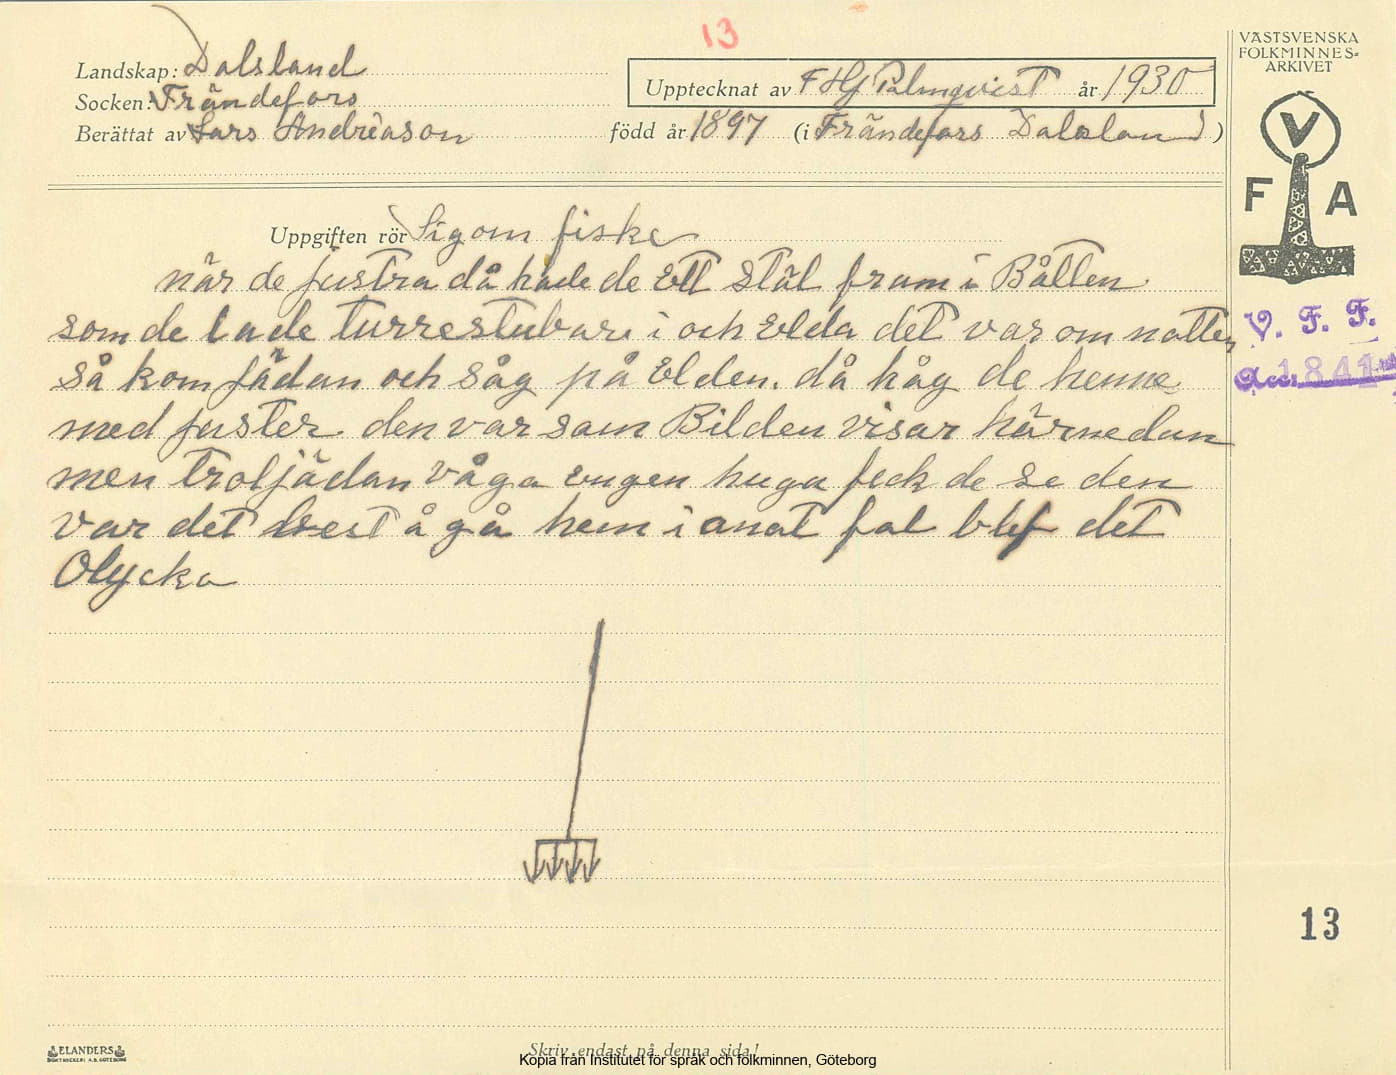 13
VÄSTSVENSKA
FOLKMINNES-
ARKIVET
Landskap: Dalsland
Upptecknat av F HG Palmqvist år 1930
Socken: Frändefors
Berättat av Lars Andréason född år 1897 (i Frändefors Dalsland)
V
F A
Uppgiften rör Sigom fiske
när de justra då hade de Ett stäl fram i Båtten
som de lade turrestubari i och Elda det var om natten
V. F. F.
så kom jädan och såg på Elden. då håg de henne
Acc. 1841
med juster den var som Bilden visar härnedan
men troljädan våga engen huga feck de se den
var det best å gå hem i anat fal blef det
Olycka
13
ELANDERS
BOKTRYCKERI A.B. GÖTEBORG
Skriv endast på denna sida!
Kopia från Institutet för språk och folkminnen, Göteborg